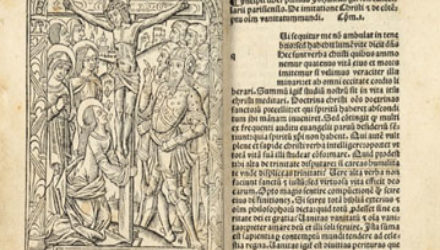 larii parisiensis. De imitatione Christi ⁊ de cōtē
ptu oīm vanitatum mundi. Cap. 1.
Ui sequitur me nō ambulat in tene
bris: sed habebit lumē vite dicit dñs
Hec sunt verba christi quibus ammo
nemur quatenus vitā eius et mores
imitemur si velimus veraciter illu
minari: et ab omni cecitate cordis li
berari. Summū igit studiū nostrū sit in vita iesu
christi meditari. Doctrina christi oēs doctrinas
et qui spiritū haberet abscondi
tum ibi māna inueniret. Sed cōtingit ꝙ multi
ex frequenti auditu euangelii paruū desideriū sē
tiunt: quia spiritū xpi non habent. Qui aūt vult
plene et sapide christi verba intelligere: oportet vt
totā vitā suā illi studeat cōformare. Quid prodest
tibi alta de trinitate disputare: si careas humilita
te vnde displiceas trinitati: Uere alta verba non
faciunt sanctū ⁊ iustū: sed virtuosa vita efficit deo
carum. Opto magis sentire compunctionē ꝙ scire
eius diffinitionē. Si scires totā bibliā exterius ⁊
oīm philosophorū dicta: quid totū prodesset sine
caritate dei et gratia. Uanitas vanitatū ⁊ oīa va
nitas: preter amare deū et illi soli seruire. Ista est
summa sapientia: per contemptū mundi tendere ad celestia
regna. Uanitas igitur